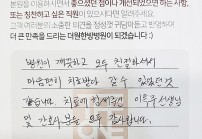 본원을 이용하시면서 좋으셨던 점이나 개선되었으면 하는 사항,
또는 칭찬하고 싶은 직원이 있으시다면 알려주세요.
고객 여러분의 소중한 의견을 정성껏 귀담아듣고 반영하여
더 큰 만족을 드리는 더원한방병원이 되겠습니다.
병원이 깨끗하고 모두 친절하셔서
마음편히 치료받아 갈수 있었던것
같습니다. 치료에 힘써주신 이은우선생님
및 간호사분들 모두 감사합니다.